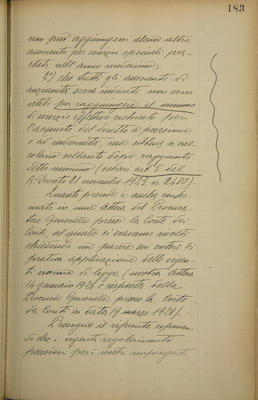 183
non può aggiungersi alcun altro
aumento per servizi speciali, pre-
stati nell'anno medesimo;
2) che tutti gli aumenti di
anzianità sono indicati non sono
utili per raggiungere il minimo
di servizio effettivo richiesto per
l'acquisto del diritto a pensione
o ad indennità, ma debbono si cal-
colano soltanto dopo raggiunto
detto minimo (vedasi art. 5 del
R. Decreto 21 novembre 1923 n. 2480).
Quanto precede è anche confer-
mato in una lettera del Procura-
tore Generale presso la Corte dei
Conti, al quale ci eravamo rivolti
chiedendo un parere sui criteri di
pratica applicazione delle vigen-
ti norme di legge (nostra lettera
14 gennaio 1928 e risposta della
Procura Generale presso la Corte
dei Conti in data 19 marzo 1928).
Prosegue il referente esponen-
do che i vigenti regolamenti
pensioni per i nostri impiegati